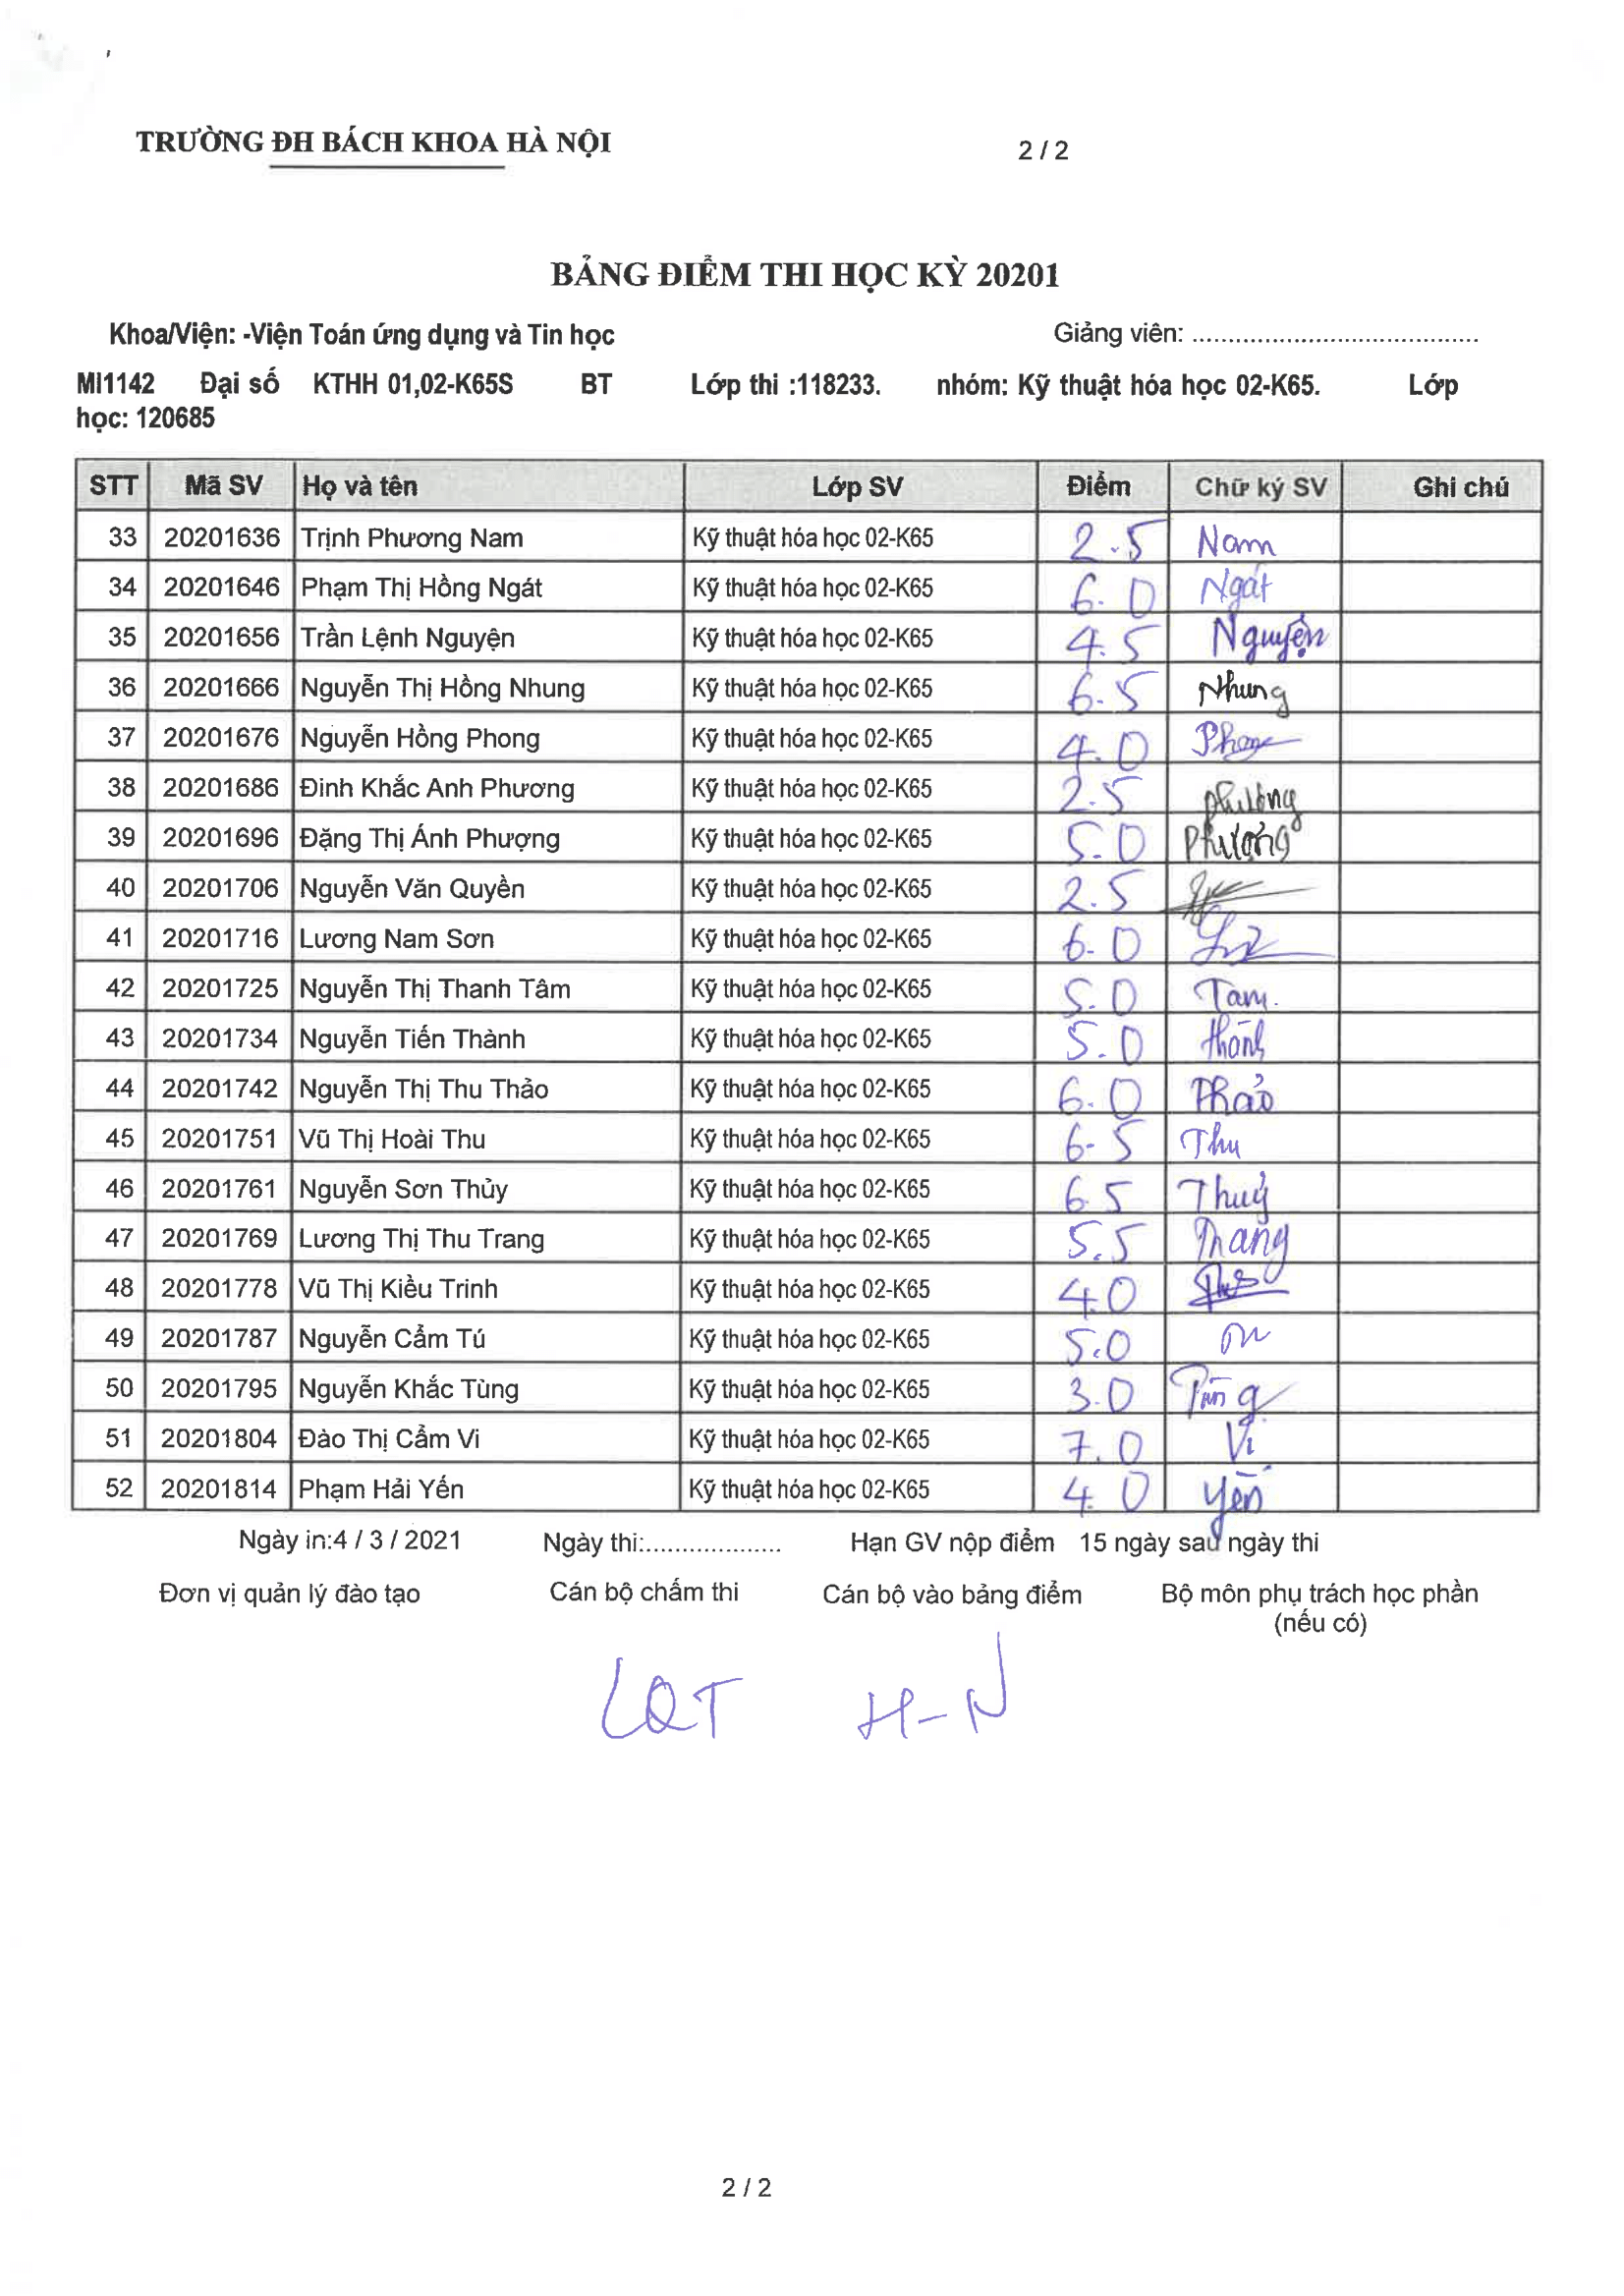 TRƯỜNG ĐH BÁCH KHOA HÀ NỘI 2 / 2
BẢNG ĐIỂM THI HỌC KỲ 20201
Khoa/Viện: -Viện Toán ứng dụng và Tin học Giảng viên: .......................................
MI1142 Đại số KTHH 01,02-K65S BT Lớp thi :118233. nhóm: Kỹ thuật hóa học 02-K65. Lớp
học: 120685
STT Mã SV Họ và tên Lớp SV Điểm Chữ ký SV Ghi chú
33 20201636 Trịnh Phương Nam Kỹ thuật hóa học 02-K65 2.5 Nam
34 20201646 Phạm Thị Hồng Ngát Kỹ thuật hóa học 02-K65 6.0 Ngát
35 20201656 Trần Lệnh Nguyện Kỹ thuật hóa học 02-K65 4.5 Nguyện
36 20201666 Nguyễn Thị Hồng Nhung Kỹ thuật hóa học 02-K65 6.5 Nhung
37 20201676 Nguyễn Hồng Phong Kỹ thuật hóa học 02-K65 4.0 Phong
38 20201686 Đinh Khắc Anh Phương Kỹ thuật hóa học 02-K65 2.5 Phương
39 20201696 Đặng Thị Ánh Phượng Kỹ thuật hóa học 02-K65 5.0 Phượng
40 20201706 Nguyễn Văn Quyền Kỹ thuật hóa học 02-K65 2.5
41 20201716 Lương Nam Sơn Kỹ thuật hóa học 02-K65 6.0
42 20201725 Nguyễn Thị Thanh Tâm Kỹ thuật hóa học 02-K65 5.0 Tam.
43 20201734 Nguyễn Tiến Thành Kỹ thuật hóa học 02-K65 5.0 thành
44 20201742 Nguyễn Thị Thu Thảo Kỹ thuật hóa học 02-K65 6.0 Thảo
45 20201751 Vũ Thị Hoài Thu Kỹ thuật hóa học 02-K65 6.5 Thu
46 20201761 Nguyễn Sơn Thủy Kỹ thuật hóa học 02-K65 6.5 Thuỷ
47 20201769 Lương Thị Thu Trang Kỹ thuật hóa học 02-K65 5.5 Trang
48 20201778 Vũ Thị Kiều Trinh Kỹ thuật hóa học 02-K65 4.0
49 20201787 Nguyễn Cẩm Tú Kỹ thuật hóa học 02-K65 5.0
50 20201795 Nguyễn Khắc Tùng Kỹ thuật hóa học 02-K65 3.0 Tùng
51 20201804 Đào Thị Cẩm Vi Kỹ thuật hóa học 02-K65 7.0 Vi
52 20201814 Phạm Hải Yến Kỹ thuật hóa học 02-K65 4.0 Yến
Ngày in:4 / 3 / 2021 Ngày thi:................... Hạn GV nộp điểm 15 ngày sau ngày thi
Đơn vị quản lý đào tạo Cán bộ chấm thi Cán bộ vào bảng điểm Bộ môn phụ trách học phần
(nếu có)
LQT H-N
2 / 2